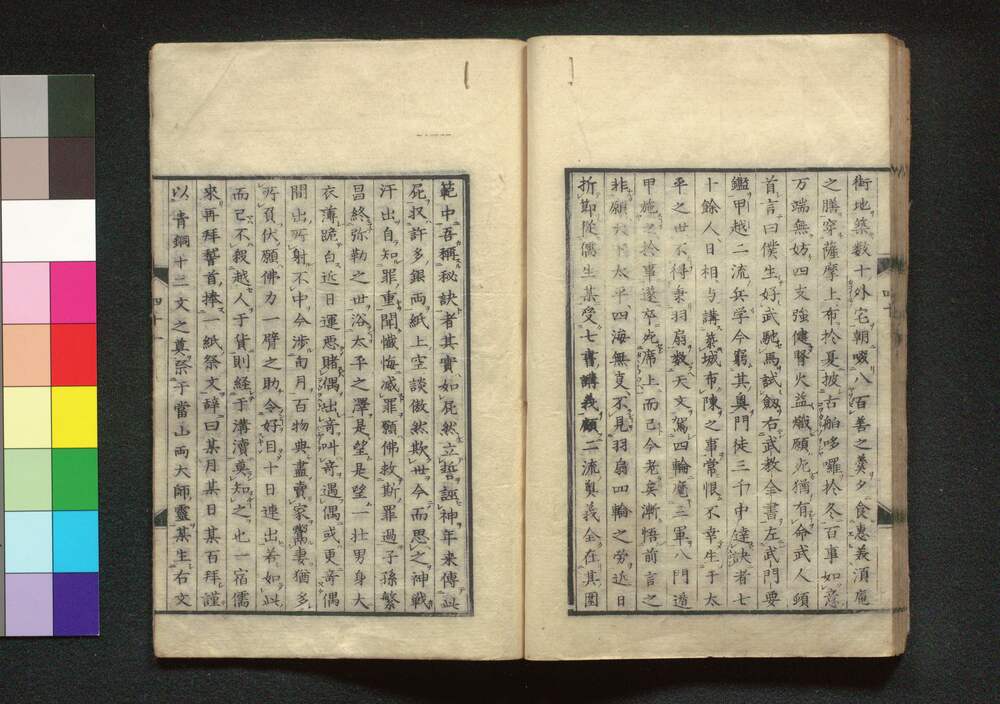 街地築数十外宅朝啜八百善之羹夕食恵美須庵
之膳穿薩摩上布於夏披古舶哆囉於冬百事如意
万端無妨四支強健腎火益熾願尨猶有命武人頭
首言曰僕生好武馳馬試劔右武教傘書左武門要
鑑甲越二流兵学今窮其奥門徒三千中達訣者七
十餘人日相与講築城布陳之事常恨不幸生于太
平之世不得乗羽扇数天文駕四輪麾三軍八門遁
甲施之於事遂卒死席上而已今老矣漸悟前言之
非願天下太平四海無変不見羽扇四輪之労近日
折節従儒生某受七書講義願二流奥義全在其圏
四十
範中吾稱秘訣者其實如屁然立誓誣神年来傳此
屁収許多銀両紙上空談倣然欺世今而思之神戦
汗出自知罪重聞懺悔滅罪願佛救斯罪過子孫繁
昌終弥勒之世浴太平之澤是望是望一壮男身大
衣薄跪白近日運悪賭偶出竒叫竒遇偶或更竒偶
間出所射不中今渉両月百物典盡賣家鬻妻猶多
所負伏願佛力一臂之助令好目十日連出若如此
而已不殺越人于貨則経于溝瀆莫知之也一宿儒
来再拜稽首捧一紙祭文辞曰某月某日某百拜謹
以青銅十二文之奠祭于當山両大師靈某生右文
四十一